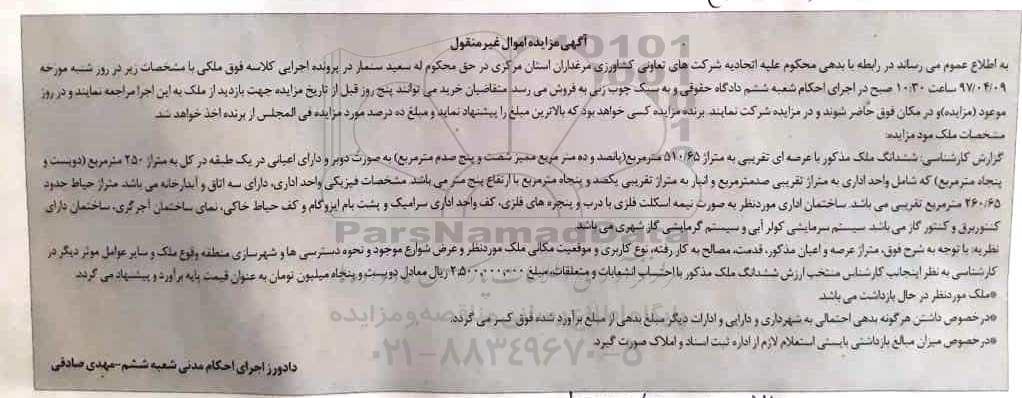 آگهی مزایده اموال غیر منقول
به اطلاع عموم می رساند در رابطه با بدهی محکوم علیه اتحادیه شرکت های تعاونی کشاورزی مرغداران استان مرکزی در حق محکوم له سعید سنمار در پرونده اجرایی کلاسه فوق ملکی با مشخصات زیر در روز شنبه مورخه
۹۷/۰۴/۰۹ ساعت ۱۰:۳۰ صبح در اجرای احکام شعبه ششم دادگاه حقوقی و به سبک چوب زنی به فروش می رسد متقاضیان خرید می توانند پنج روز قبل از تاریخ مزایده جهت بازدید از ملک به این اجرا مراجعه نمایند و در روز
موعود (مزایده)و در مکان فوق حاضر شوند و در مزایده شرکت نمایند. برنده مزایده کسی خواهد بود که بالاترین مبلغ را پیشنهاد نماید و مبلغ ده درصد مورد مزایده فی المجلس از برنده اخذ خواهد شد.
مشخصات ملک مود مزایده:
گزارش کارشناسی: ششدانگ ملک مذکور با عرصه ای تقریبی به متراژ ۵۱۰/۶۵ مترمربع(پانصد و ده متر مربع ممیز شصت و پنج صدم مترمربع) به صورت دوبر و دارای اعیانی در یک طبقه در کل به متراژ ۲۵۰ مترمربع (دویست و
پنجاه مترمربع) که شامل واحد اداری به متراژ تقریبی صدمترمربع و انبار به متراژ تقریبی یکصد و پنجاه مترمربع با ارتفاع پنج متر می باشد. مشخصات فیزیکی واحد اداری، دارای سه اتاق و آبدارخانه می باشد. متراژ حیاط حدود
۲۶۰/۶۵ مترمربع تقریبی می باشد. ساختمان اداری موردنظر به صورت نیمه اسکلت فلزی با درب و پنجره های فلزی، کف واحد اداری سرامیک و پشت بام ایزوگام و کف حیاط خاکی، نمای ساختمان آجرگری، ساختمان دارای
کنتوربرق و کنتور گاز می باشد. سیستم سرمایشی کولر آبی و سیستم گرمایشی گاز شهری می باشد.
نظریه: با توجه به شرح فوق، متراژ عرصه و اعیان مذکور، قدمت، مصالح به کار رفته، نوع کاربری و موقعیت مکانی ملک موردنظر و عرض شوارع موجود و نحوه دسترسی ها و شهرسازی منطقه وقوع ملک و سایر عوامل موثر دیگر در
کارشناسی به نظر اینجانب کارشناس منتخب ارزش ششدانگ ملک مذکور با احتساب انشعابات و متعلقات، مبلغ ۲،۵۰۰،۰۰۰،۰۰۰ ریال معادل دویست و پنجاه میلیون تومان به عنوان قیمت پایه برآورد و پیشنهاد می گردد.
*ملک موردنظر در حال بازداشت می باشد.
*در خصوص داشتن هرگونه بدهی احتمالی به شهرداری و دارایی و ادارات دیگر مبلغ بدهی از مبلغ برآورد شده فوق کسر می گردد.
*در خصوص میزان مبالغ بازداشتی بایستی استعلام لازم از اداره ثبت اسناد و املاک صورت گیرد.
دادورز اجرای احکام مدنی شعبه ششم-مهدی صادقی
ParsNamad
۰۲۱-۸۸۳۴۹۶۷۰-۵